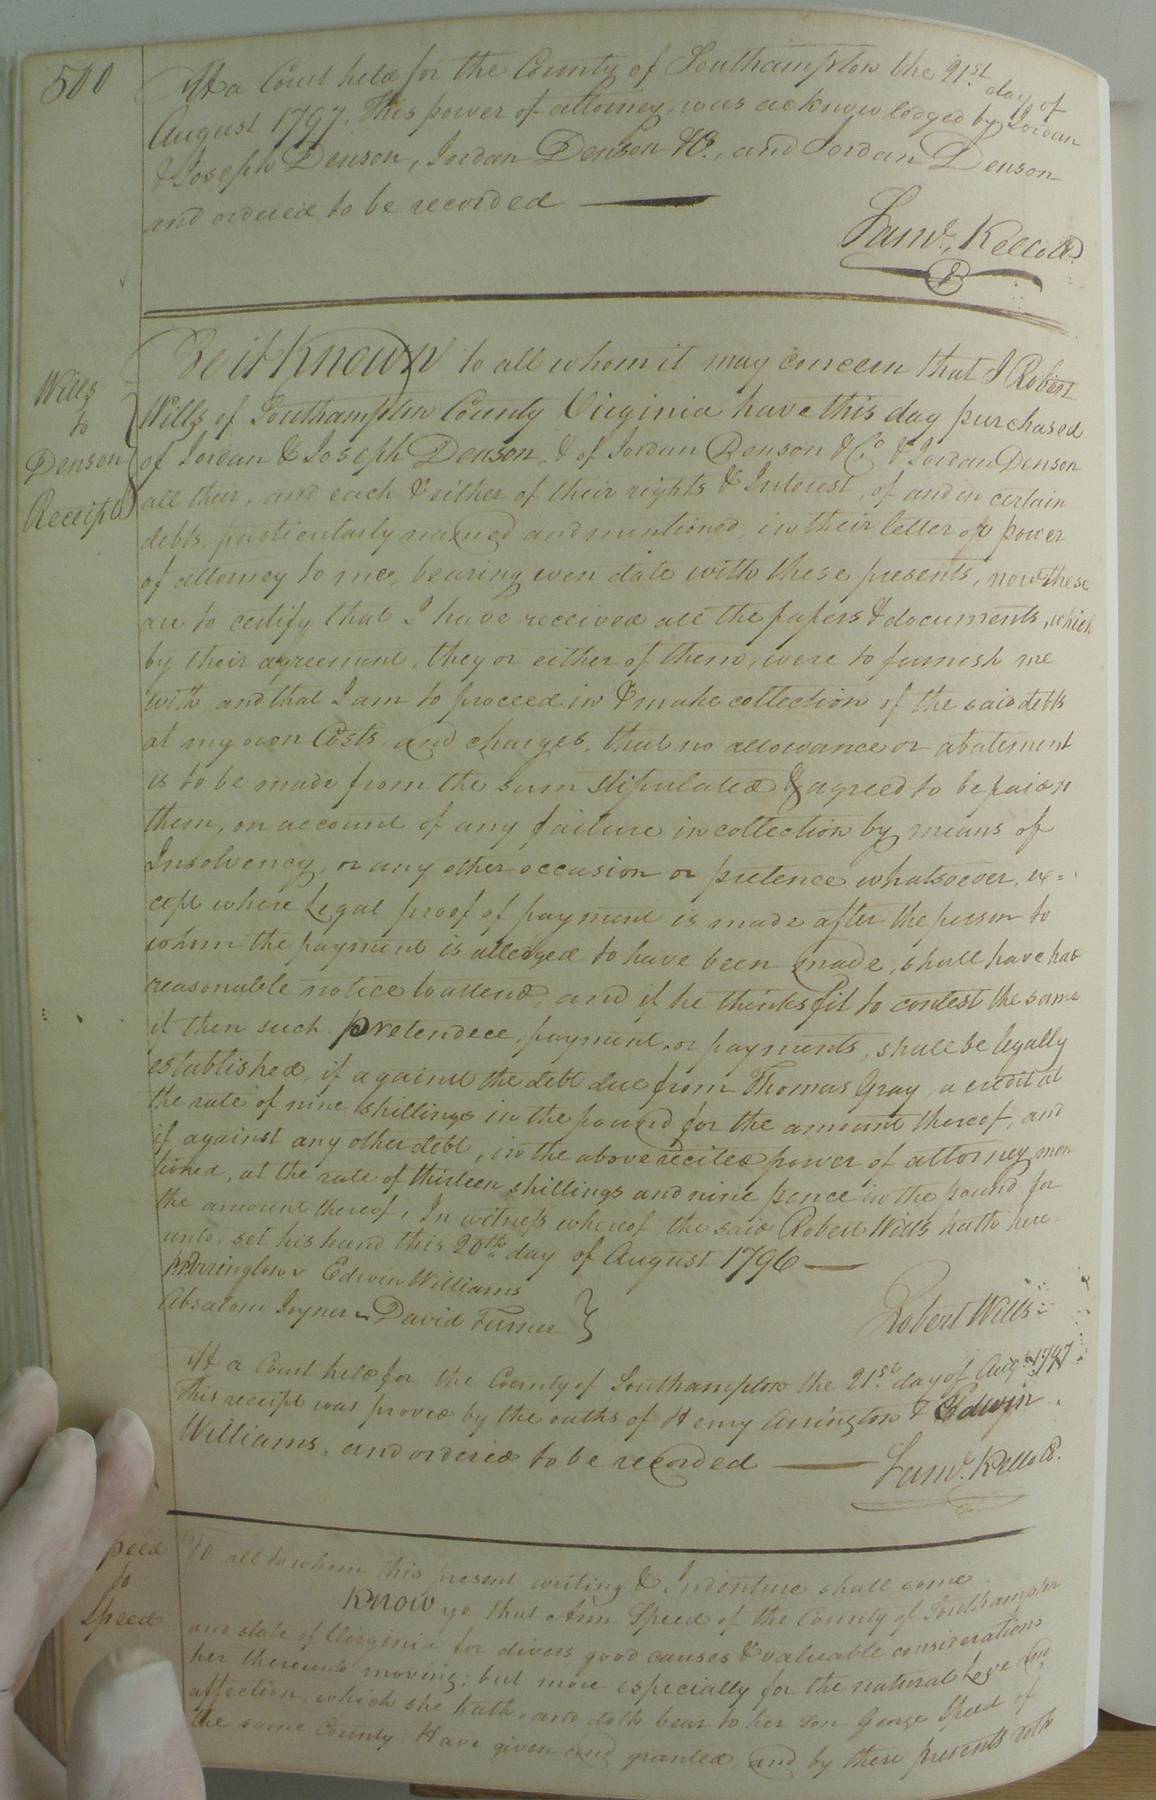 500
At a Court held for the County of Southampton the 21st. day of
August 1797. This power of attorney, was acknowledged by Jordan
& Joseph Denson, Jordan Denson &Co., and Jordan Denson
and ordered to be recorded
Saml. Kello Cl.
Wills
to
Denson
Receipt
Be it Known to all whom it may concern that I Robert
Wills of Southampton County Virginia have this day purchased
of Jordan & Joseph Denson, & of Jordan Denson & Co. & Jordan Denson
all their, and each & either of their rights & Interest, of and in certain
debts, particularly named and mentioned, in their letter of power
of attorney to me, bearing even date with these presents, now these
are to certify that I have received all the papers & documents, which
by their agreement, they or either of them, were to furnish me
with, and that I am to proceed in & make collection of the said debts
at my own Costs, and charges, that no allowance or abatement
is to be made from the sum stipulated & agreed to be paid
them, on account of any failure in collection by means of
Insolvency, or any other occasion or pretence whatsoever, ex=
cept where Legal proof of payment is made after the person to
whom the payment is alledged to have been made, shall have had
reasonable notice to attend, and if he thinks fit to contest the same
if then such pretendece, payment, or payments, shall be legally
established, if against the debt due from Thomas Gray, a credit at
the rate of nine shillings in the pound for the amount thereof, and
if against any other debt, in the above recited power of attorney men
tioned, at the rate of thirteen shillings and nine pence in the pound for
the amount thereof, In witness whereof the said Robert Wills hath here=
unto, set his hand this 20th day of August 1796
Arrington Edwin Williams
Absalom Joyner David Turner }
Robert Wills
At a Court held for the County of Southampton the 21st. day of Augt. 1797
This receipt was proved by the oaths of Henry Arrington & Edwin
Williams, and ordered to be recorded
Saml. Kello Cl.
peed
to
Speed
To all to whom this present writing & Indenture shall come
Know ye that Ann Speed of the County of Southampton
and state of Virginia for divers good causes & valuable considerations
her thereunto moving; but more especially for the natural Love and
affection, which she hath, and doth bear to her son George Speed of
the same County. Have given and granted, and by these presents doth